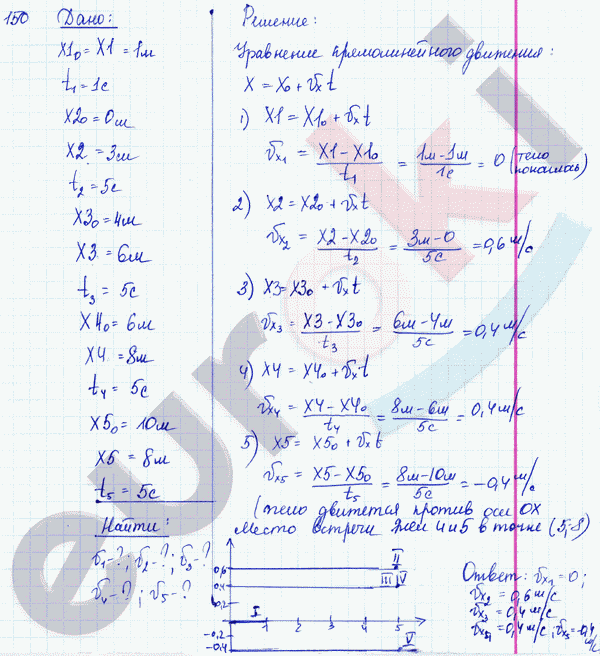 150 Дано:
X1₀ = X1 = 1м
t₁ = 1с
X2₀ = 0м
X2 = 3м
t₂ = 5с
X3₀ = 4м
X3 = 6м
t₃ = 5с
X4₀ = 6м
X4 = 8м
t₄ = 5с
X5₀ = 10м
X5 = 8м
t₅ = 5с
Найти:
v₁-?; v₂-?; v₃-?
v₄-?; v₅-?
Решение:
Уравнение прямолинейного движения:
X = X₀ + vₓt
1) X1 = X1₀ + vₓt
vₓ₁ = (X1 - X1₀)/t₁ = (1м - 1м)/1с = 0 (тело покоилась)
2) X2 = X2₀ + vₓt
vₓ₂ = (X2 - X2₀)/t₂ = (3м - 0)/5с = 0,6 м/с
3) X3 = X3₀ + vₓt
vₓ₃ = (X3 - X3₀)/t₃ = (6м - 4м)/5с = 0,4 м/с
4) X4 = X4₀ + vₓt
vₓ₄ = (X4 - X4₀)/t₄ = (8м - 6м)/5с = 0,4 м/с
5) X5 = X5₀ + vₓt
vₓ₅ = (X5 - X5₀)/t₅ = (8м - 10м)/5с = -0,4 м/с
(тело движется против оси OX
Место встречи тел 4 и 5 в точке (5; 8)
0,6 II
0,4 III IV
0,2
I
1 2 3 4 5
-0,2
-0,4 V
Ответ: vₓ₁ = 0;
vₓ₂ = 0,6 м/с
vₓ₃ = 0,4 м/с
vₓ₄ = 0,4 м/с; vₓ₅ = -0,4 м/с
euroki